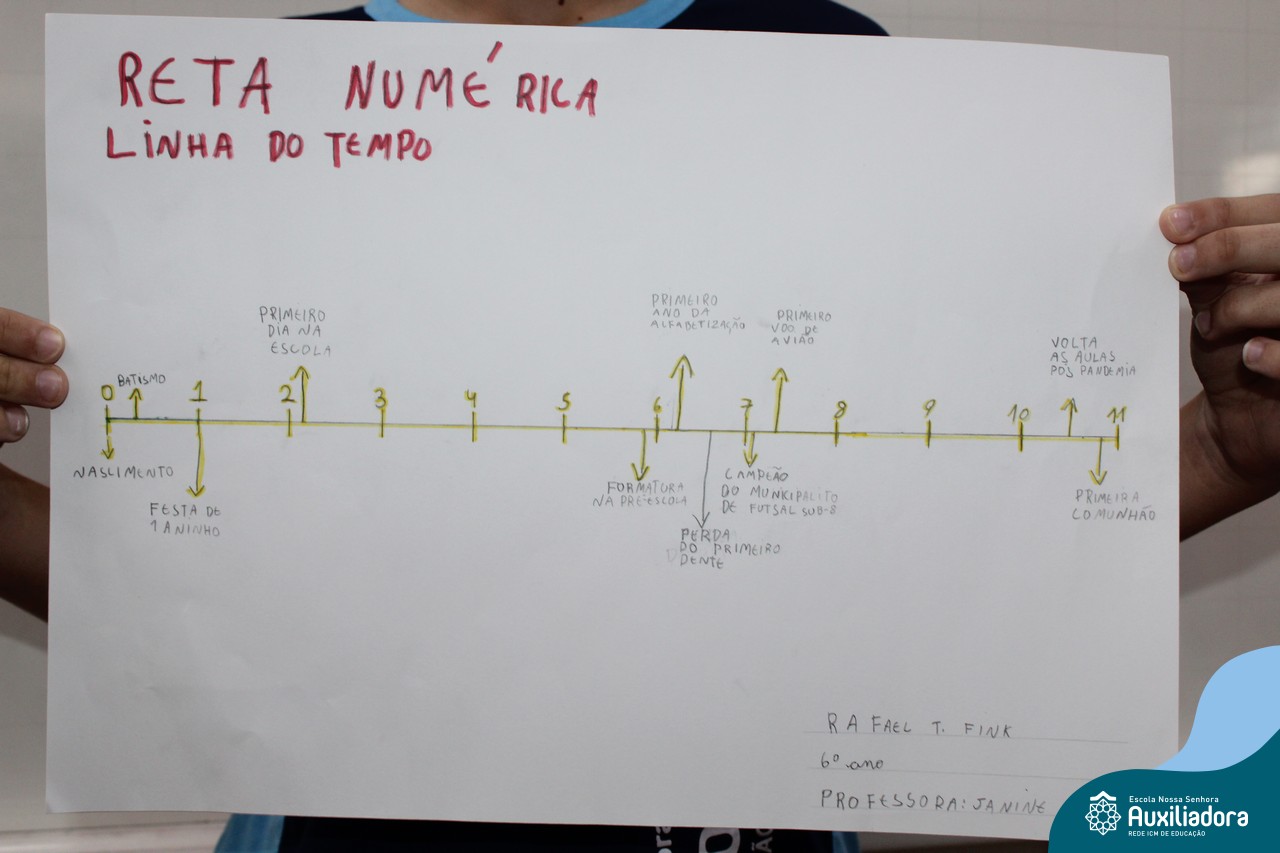 RETA NUMÉRICA
LINHA DO TEMPO
PRIMEIRO
DIA NA
ESCOLA
PRIMEIRO
ANO DA
ALFABETIZAÇÃO
PRIMEIRO
VOO DE
AVIÃO
VOLTA
AS AULAS
PÓS PANDEMIA
BATISMO
0 1 2 3 4 5 6 7 8 9 10 11
NASCIMENTO
FESTA DE
1 ANINHO
FORMATURA
NA PRÉ-ESCOLA
CAMPEÃO
DO MUNICIPALITO
DE FUTSAL SUB-8
PERDA
DO PRIMEIRO
DENTE
PRIMEIRA
COMUNHÃO
RAFAEL T. FINK
6º ano
PROFESSORA: JANINE
Escola Nossa Senhora
Auxiliadora
REDE ICM DE EDUCAÇÃO